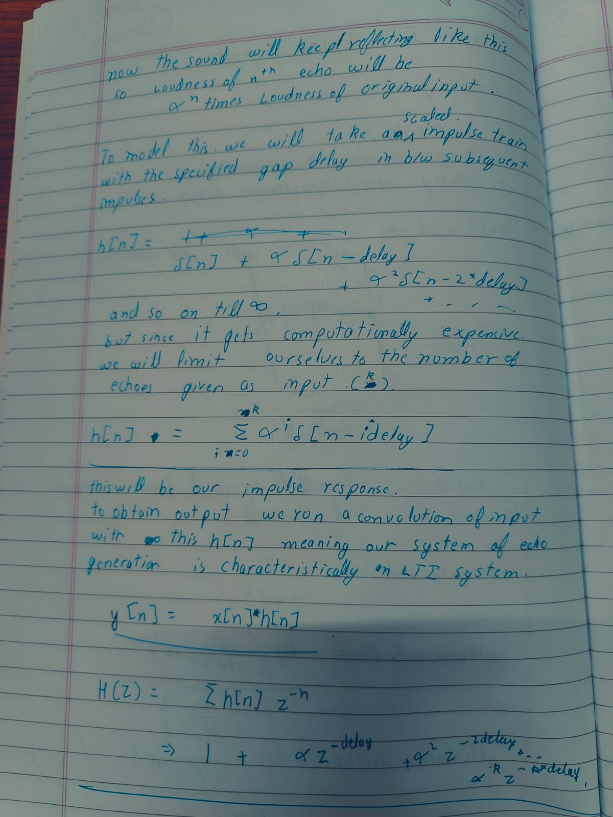 now the sound will keep reflecting like this
so Loudness of nᵗʰ echo will be
αⁿ times Loudness of original input.
To model this we will take a scaled impulse train
with the specified gap delay in b/w subsequent
impulses.
h[n] =
δ[n] + α δ[n - delay]
+ α² δ[n - 2*delay]
+ - . . -
and so on till ∞.
but since it gets computationally expensive
we will limit ourselves to the number of
echoes given as input (k).
h[n] = Σ αⁱ δ[n - idelay]
k
i = 0
this will be our impulse response.
to obtain output we run a convolution of input
with this h[n] meaning our system of echo
generation is characteristically an LTI system.
y[n] = x[n]*h[n]
H(Z) = Σ h[n] z⁻ⁿ
⇒ 1 + α z^-delay + α² z^-2delay + ...
α^k z^-k*delay.